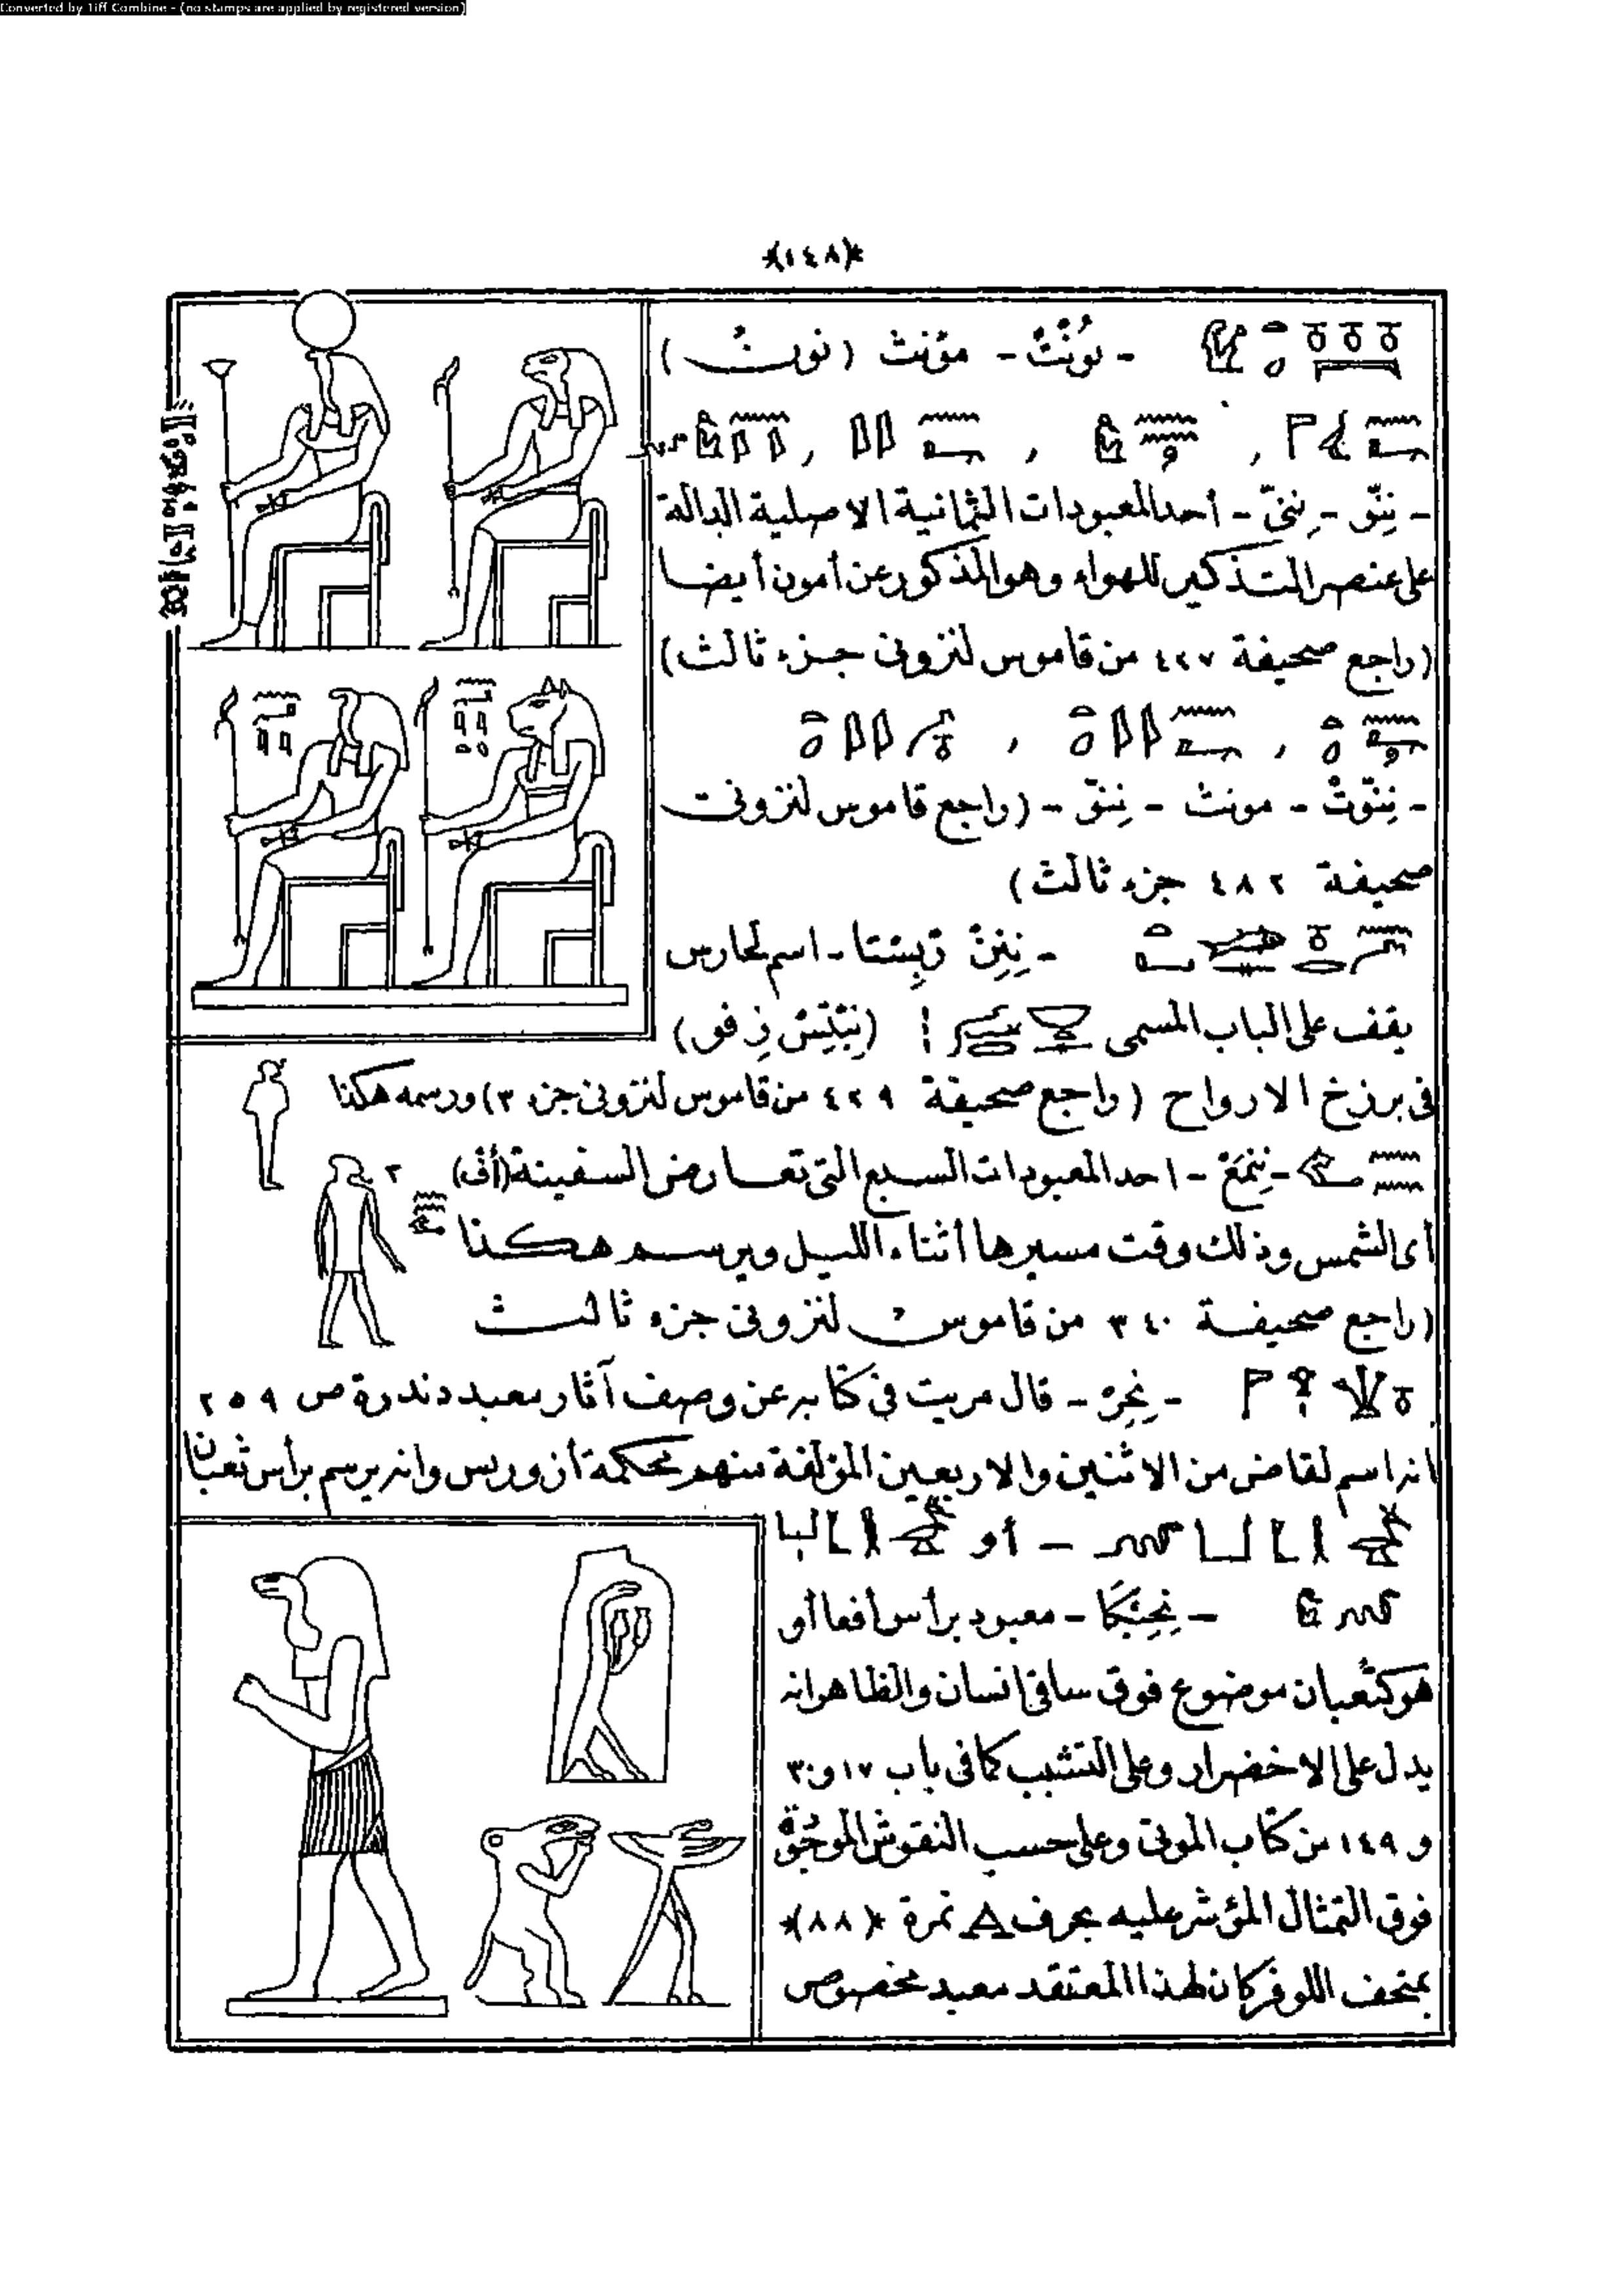 Converted by Tiff Combine - (no stamps are applied by registered version)
*(١٤٨)*
- نُوُنْتْ - مؤنث (نوت)
- نِنّو - نِنىّ - أحد المعبودات الثمانية الاصلية الدالة
على عنصر المتذكير للهواء وهو المذكور عن أمون أيضا
(راجع صحيفة ٤٢٧ من قاموس لنزونى جزء ثالث)
- نِنّوتْ - مونث - نِنىّ - (راجع قاموس لنزونى
صحيفة ٤٨٢ جزء ثالث)
- اسم لحارس
يقف على الباب المسمى
فى برزخ الارواح (راجع صحيفة ٤٢٩ من قاموس لنزونى جزء ٣) ورسمه هكذا
- احد المعبودات السبع التى تعارض السفينة (أف) ٢
أى الشمس وذلك وقت مسيرها أثناء الليل ويرسم هكذا
(راجع صحيفة ٣٤٠ من قاموس لنزونى جزء ثالث
- نِحِرْ - قال مريت فى كتابه عن وصف آثار معبد دندرة ص ٢٥٩
انه اسم لقاض من الاثنين والاربعين المؤلفة منهم محكمة أزوريس وانه يرسم برأس ثعبان
- أو
- نِحِبْكَا - معبود برأس أفعا أو
هو كثعبان موضوع فوق ساقى انسان والظاهر انه
يدل على الاخضرار وعلى التشبب كما فى باب ١٧ و ٣٠
و ١٤٩ من كتاب الموتى وعلى حسب النقوش الموجودة
فوق التمثال المؤشر عليه بحرف A نمرة *(٨٨)*
بمتحف اللوفر كان لهذا المعتقد معبد مخصوص